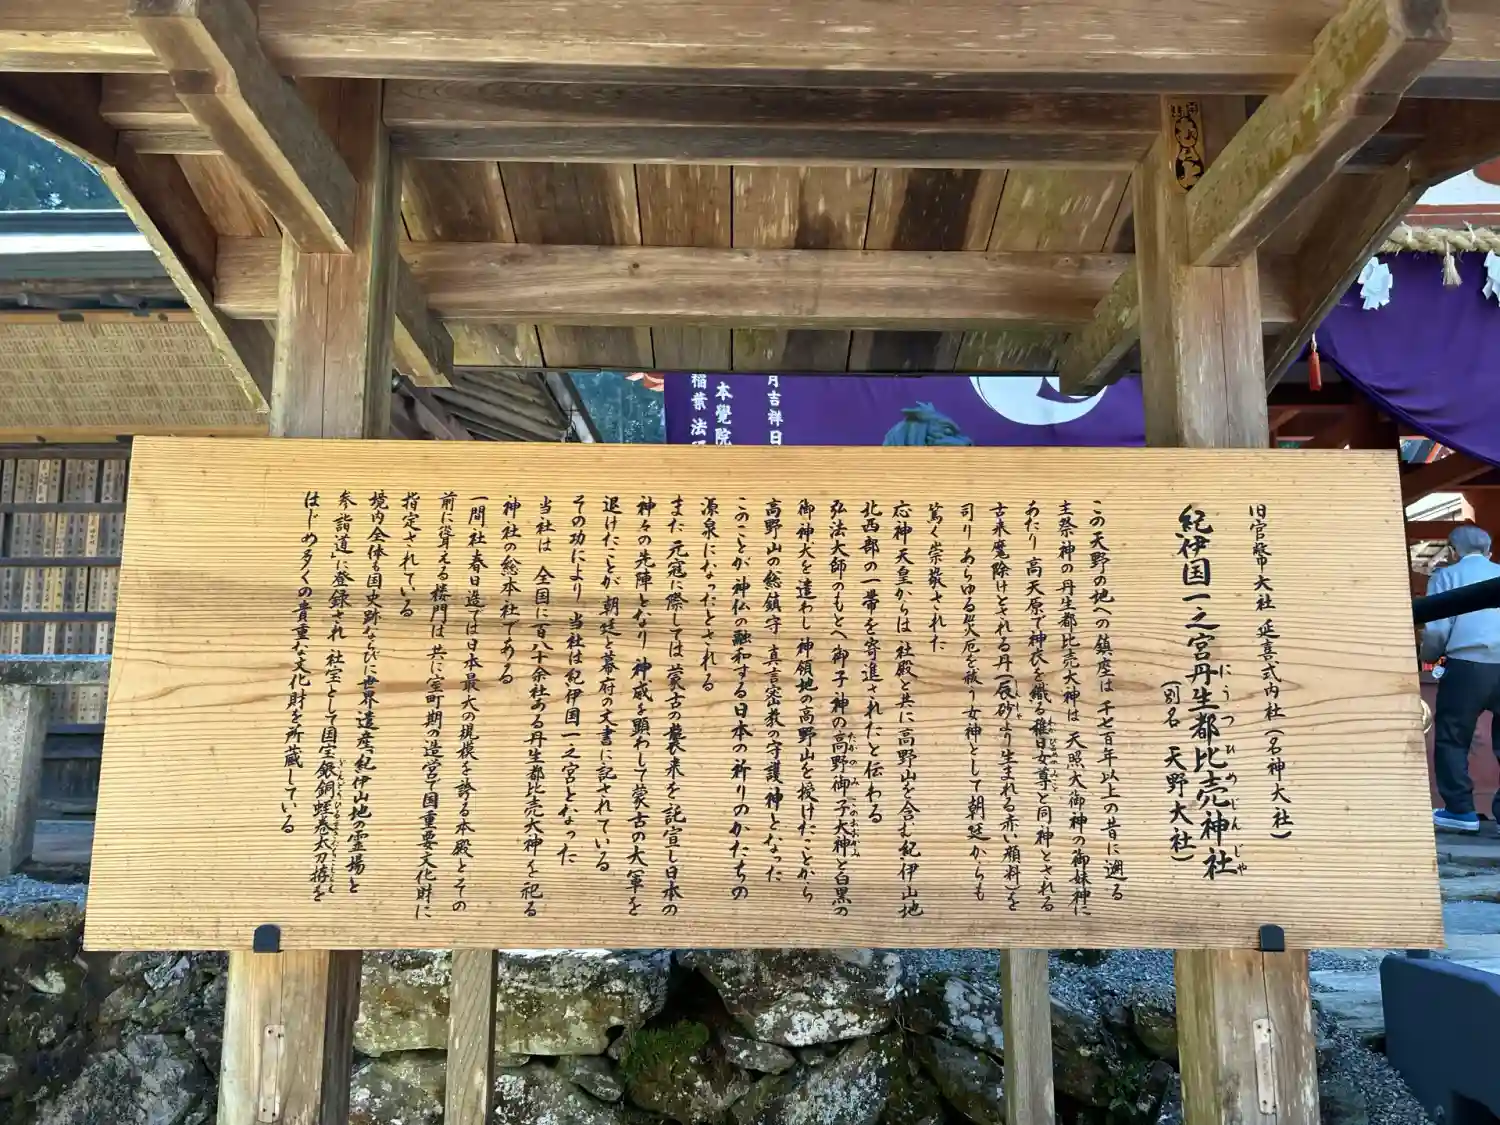 旧官幣大社 延喜式内社(名神大社)
紀伊国一之宮丹生都比売神社
にうつひめじんじゃ
(別名 天野大社)
この天野の地への鎮座は千七百年以上の昔に遡る
主祭神の丹生都比売大神は 天照大御神の御妹神に
あたり 高天原で神衣を織る稚日女尊と同神とされる
わかひるめのみこと
古来魔除けとされる丹(辰砂より生まれる赤い顔料)を
しんしゃ
司り あらゆる災厄を祓う女神として朝廷からも
篤く崇敬された
応神天皇からは 社殿と共に高野山を含む紀伊山地
北西部の一帯を寄進されたと伝わる
弘法大師のもとへ御子神の高野御子大神と白黒の
たかのみこのおおかみ
御神犬を遣わし 神領地の高野山を授けたことから
高野山の総鎮守 真言密教の守護神となった
このことが神仏の融和する日本の祈りのかたちの
源泉になったとされる
また 元寇に際しては 蒙古の襲来を託宣し日本の
神々の先陣となり 神威を顕わして蒙古の大軍を
退けたことが 朝廷と幕府の文書に記されている
その功により 当社は紀伊国一之宮となった
当社は 全国に百八十余社ある丹生都比売大神を祀る
神社の総本社である
一間社春日造では日本最大の規模を誇る本殿とその
前に聳える楼門は 共に室町期の造営で国重要文化財に
指定されている
境内全体も国史跡ならびに世界遺産「紀伊山地の霊場と
参詣道」に登録され 社宝として国宝銀銅蛭巻太刀拵を
ぎんどうひるまきたちこしらえ
はじめ多くの貴重な文化財を所蔵している
月吉祥日
本覺院
稲葉 法